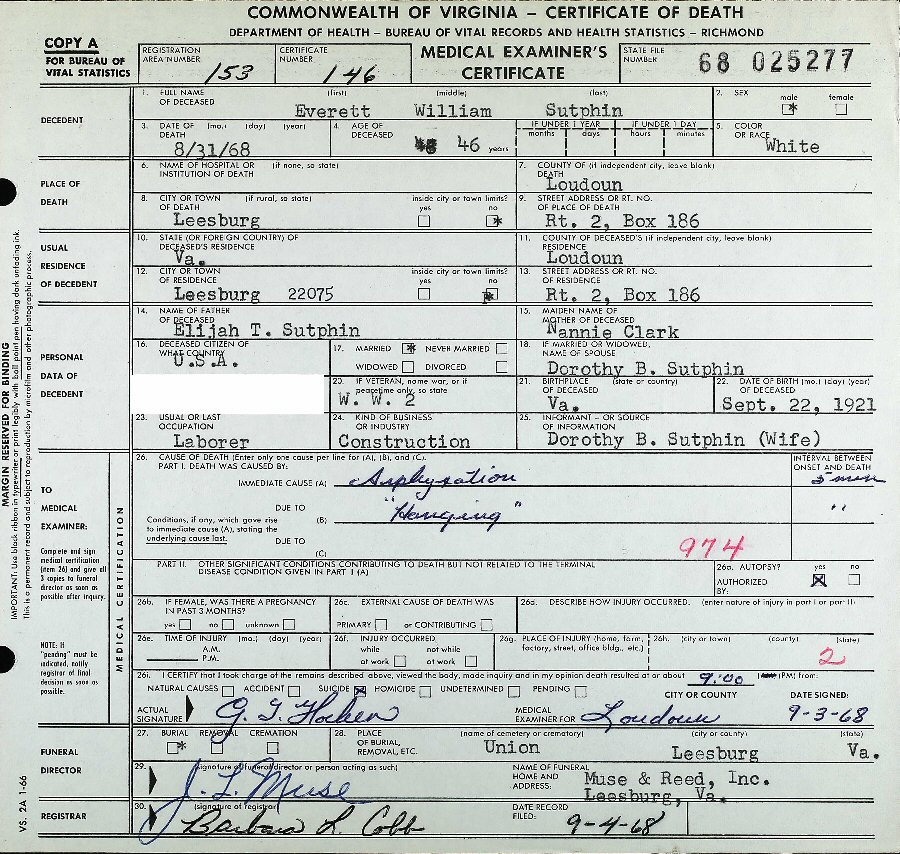 COMMONWEALTH OF VIRGINIA – CERTIFICATE OF DEATH
DEPARTMENT OF HEALTH – BUREAU OF VITAL RECORDS AND HEALTH STATISTICS – RICHMOND
COPY A
FOR BUREAU OF
VITAL STATISTICS
REGISTRATION
AREA NUMBER 153
CERTIFICATE
NUMBER 146
MEDICAL EXAMINER'S
CERTIFICATE
STATE FILE
NUMBER 68 025277
DECEDENT
1. FULL NAME OF DECEASED (first) (middle) (last)
Everett William Sutphin
2. SEX male * female
3. DATE OF DEATH (mo.) (day) (year)
8/31/68
4. AGE OF DECEASED 46 years
IF UNDER 1 YEAR months days
IF UNDER 1 DAY hours minutes
5. COLOR OR RACE White
PLACE OF
DEATH
6. NAME OF HOSPITAL OR INSTITUTION OF DEATH (if none, so state)
7. COUNTY OF DEATH (if independent city, leave blank)
Loudoun
8. CITY OR TOWN OF DEATH (if rural, so state)
Leesburg
inside city or town limits? yes no *
9. STREET ADDRESS OR RT. NO. OF PLACE OF DEATH
Rt. 2, Box 186
USUAL
RESIDENCE
OF DECEDENT
10. STATE (OR FOREIGN COUNTRY) OF DECEASED'S RESIDENCE
Va.
11. COUNTY OF DECEASED'S RESIDENCE (if independent city, leave blank)
Loudoun
12. CITY OR TOWN OF RESIDENCE
Leesburg 22075
inside city or town limits? yes no *
13. STREET ADDRESS OR RT. NO. OF RESIDENCE
Rt. 2, Box 186
PERSONAL
DATA OF
DECEDENT
14. NAME OF FATHER OF DECEASED
Elijah T. Sutphin
15. MAIDEN NAME OF MOTHER OF DECEASED
Nannie Clark
16. DECEASED CITIZEN OF WHAT COUNTRY
U.S.A.
17. MARRIED * NEVER MARRIED
WIDOWED DIVORCED
18. IF MARRIED OR WIDOWED, NAME OF SPOUSE
Dorothy B. Sutphin
20. IF VETERAN, name war, or if peacetime only, so state
W. W. 2
21. BIRTHPLACE OF DECEASED (state or country)
Va.
22. DATE OF BIRTH (mo.) (day) (year) OF DECEASED
Sept. 22, 1921
23. USUAL OR LAST OCCUPATION
Laborer
24. KIND OF BUSINESS OR INDUSTRY
Construction
25. INFORMANT – OR SOURCE OF INFORMATION
Dorothy B. Sutphin (Wife)
TO
MEDICAL
EXAMINER:
Complete and sign
medical certification
(item 26) and give all
3 copies to funeral
director as soon as
possible after inquiry.
NOTE: If
"pending" must be
indicated, notify
registrar of final
decision as soon as
possible.
MEDICAL CERTIFICATION
26. CAUSE OF DEATH (Enter only one cause per line for (A), (B), and (C).
PART I. DEATH WAS CAUSED BY:
INTERVAL BETWEEN
ONSET AND DEATH
IMMEDIATE CAUSE (A) Asphyxation 5 min
DUE TO
(B) "Hanging" "
Conditions, if any, which gave rise
to immediate cause (A), stating the
underlying cause last.
DUE TO
(C)
974
PART II. OTHER SIGNIFICANT CONDITIONS CONTRIBUTING TO DEATH BUT NOT RELATED TO THE TERMINAL
DISEASE CONDITION GIVEN IN PART I (A)
26a. AUTOPSY? yes no
AUTHORIZED
BY:
26b. IF FEMALE, WAS THERE A PREGNANCY
IN PAST 3 MONTHS?
yes no unknown
26c. EXTERNAL CAUSE OF DEATH WAS
PRIMARY or CONTRIBUTING
26d. DESCRIBE HOW INJURY OCCURRED. (enter nature of injury in part I or part II)
26e. TIME OF INJURY (mo.) (day) (year)
A.M.
P.M.
26f. INJURY OCCURRED
while at work not while at work
26g. PLACE OF INJURY (home, farm,
factory, street, office bldg., etc.)
26h. (city or town) (county) (state)
2
26i. I CERTIFY that I took charge of the remains described above, viewed the body, made inquiry and in my opinion death resulted at or about 9:00 (PM) from:
NATURAL CAUSES ACCIDENT SUICIDE HOMICIDE UNDETERMINED PENDING
CITY OR COUNTY DATE SIGNED:
ACTUAL
SIGNATURE
MEDICAL
EXAMINER FOR Loudoun 9-3-68
FUNERAL
DIRECTOR
27. BURIAL * REMOVAL CREMATION
28. PLACE OF BURIAL, REMOVAL, ETC.
(name of cemetery or crematory) (city or county) (state)
Union Leesburg Va.
29. (signature of funeral director or person acting as such)
J. L. Muse
NAME OF FUNERAL
HOME AND
ADDRESS:
Muse & Reed, Inc.
Leesburg, Va.
REGISTRAR
30. (signature of registrar)
Barbara L. Cobb
DATE RECORD
FILED: 9-4-68
VS. 2A 1-66
MARGIN RESERVED FOR BINDING
IMPORTANT: Use black ribbon in typewriter or print legibly with ball point pen having dark unfading ink.
This is a permanent record and subject to reproduction by microfilm and other photographic process.